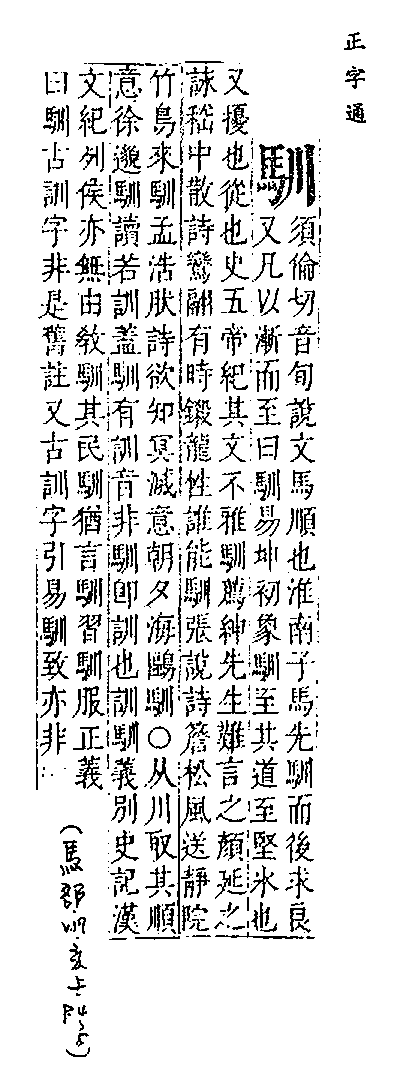 正字通
馴
須倫切音旬說文馬順也淮南子馬先馴而後求良
又凡以漸而至曰馴易坤初象馴至其道至堅氷也
又擾也從也史五帝紀其文不雅馴薦紳先生難言之顏延之
詠嵇中散詩鸞翮有時鎩龍性誰能馴張說詩簷松風送靜院
竹鳥來馴孟浩肰詩欲知冥滅意朝夕海鷗馴○从川取其順
意徐邈馴讀若訓蓋馴有訓音非馴卽訓也訓馴義別史記漢
文紀列侯亦無由敎馴其民馴猶言馴習馴服正義
曰馴古訓字非是舊註又古訓字引易馴致亦非
(馬部·川·亥上·P4-5)